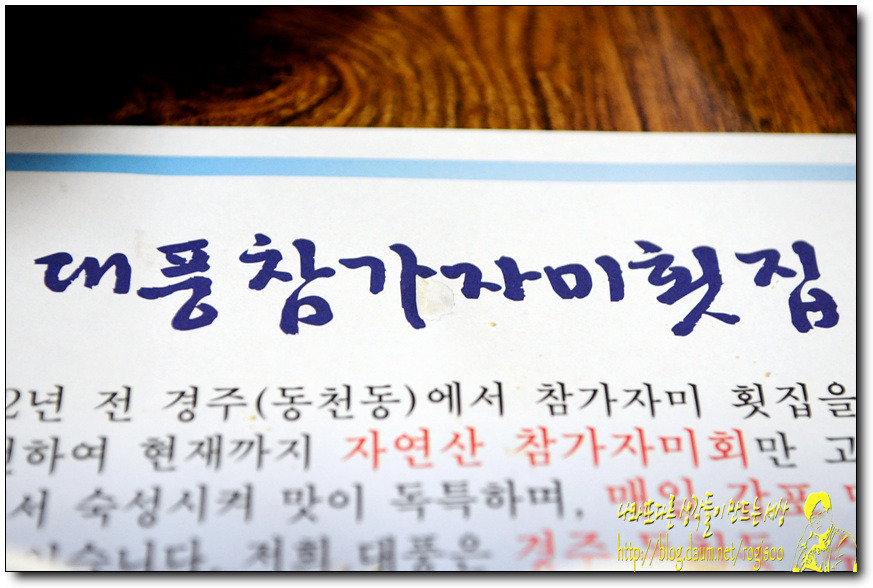 대풍참가자미횟집
2년 전 경주(동천동)에서 참가자미 횟집을
하여 현재까지 자연산 참가자미회만 고
서 숙성시켜 맛이 독특하며, 매일 감포
저희 대풍은 경주
나와 또다른 생각들이 만드는 세상
http://blog.daum.net/rogisoo